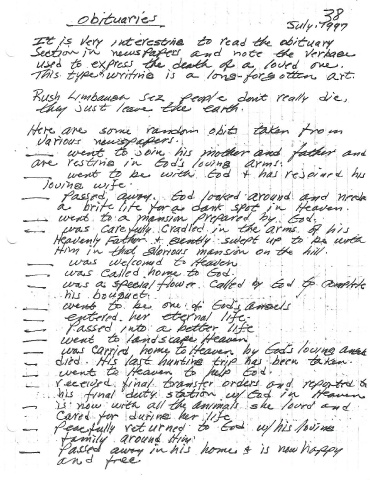 38
Obituaries
July. 1997
It is very interesting to read the obituary
section in newspapers and note the verbage
used to express the death of a loved one.
This type writing is a long-forgotten art.
Rush Limbaugh sez people don't really die,
they just leave the earth.
Here are some random obits taken from
various newspapers.
— went to join his mother and father and
are resting in God's loving arms.
— went to be with God & has rejoined his
loving wife.
— Passed away. God looked around and needed
a brite life for a dark spot in Heaven.
— went to a mansion prepared by God.
— was carefully cradled in the arms of his
Heavenly Father & gently swept up to be with
Him in that glorious mansion on the hill.
— was welcomed to Heaven.
— was called home to God.
— was a special flower called by God to
his bouquet.
— went to be one of God's angels
— entered her eternal life.
— Passed into a better life
— went to landscape Heaven
— was carried home to Heaven by God's loving
— died. His last hunting trip has been taken.
— went to Heaven to help God.
— received final transfer orders and reported to
his final duty station w/God in Heaven
— is now with all the animals she loved and
cared for during her life
— Peacefully returned to God w/his loving
family around Him.
— Passed away in his home & is now happy
and free